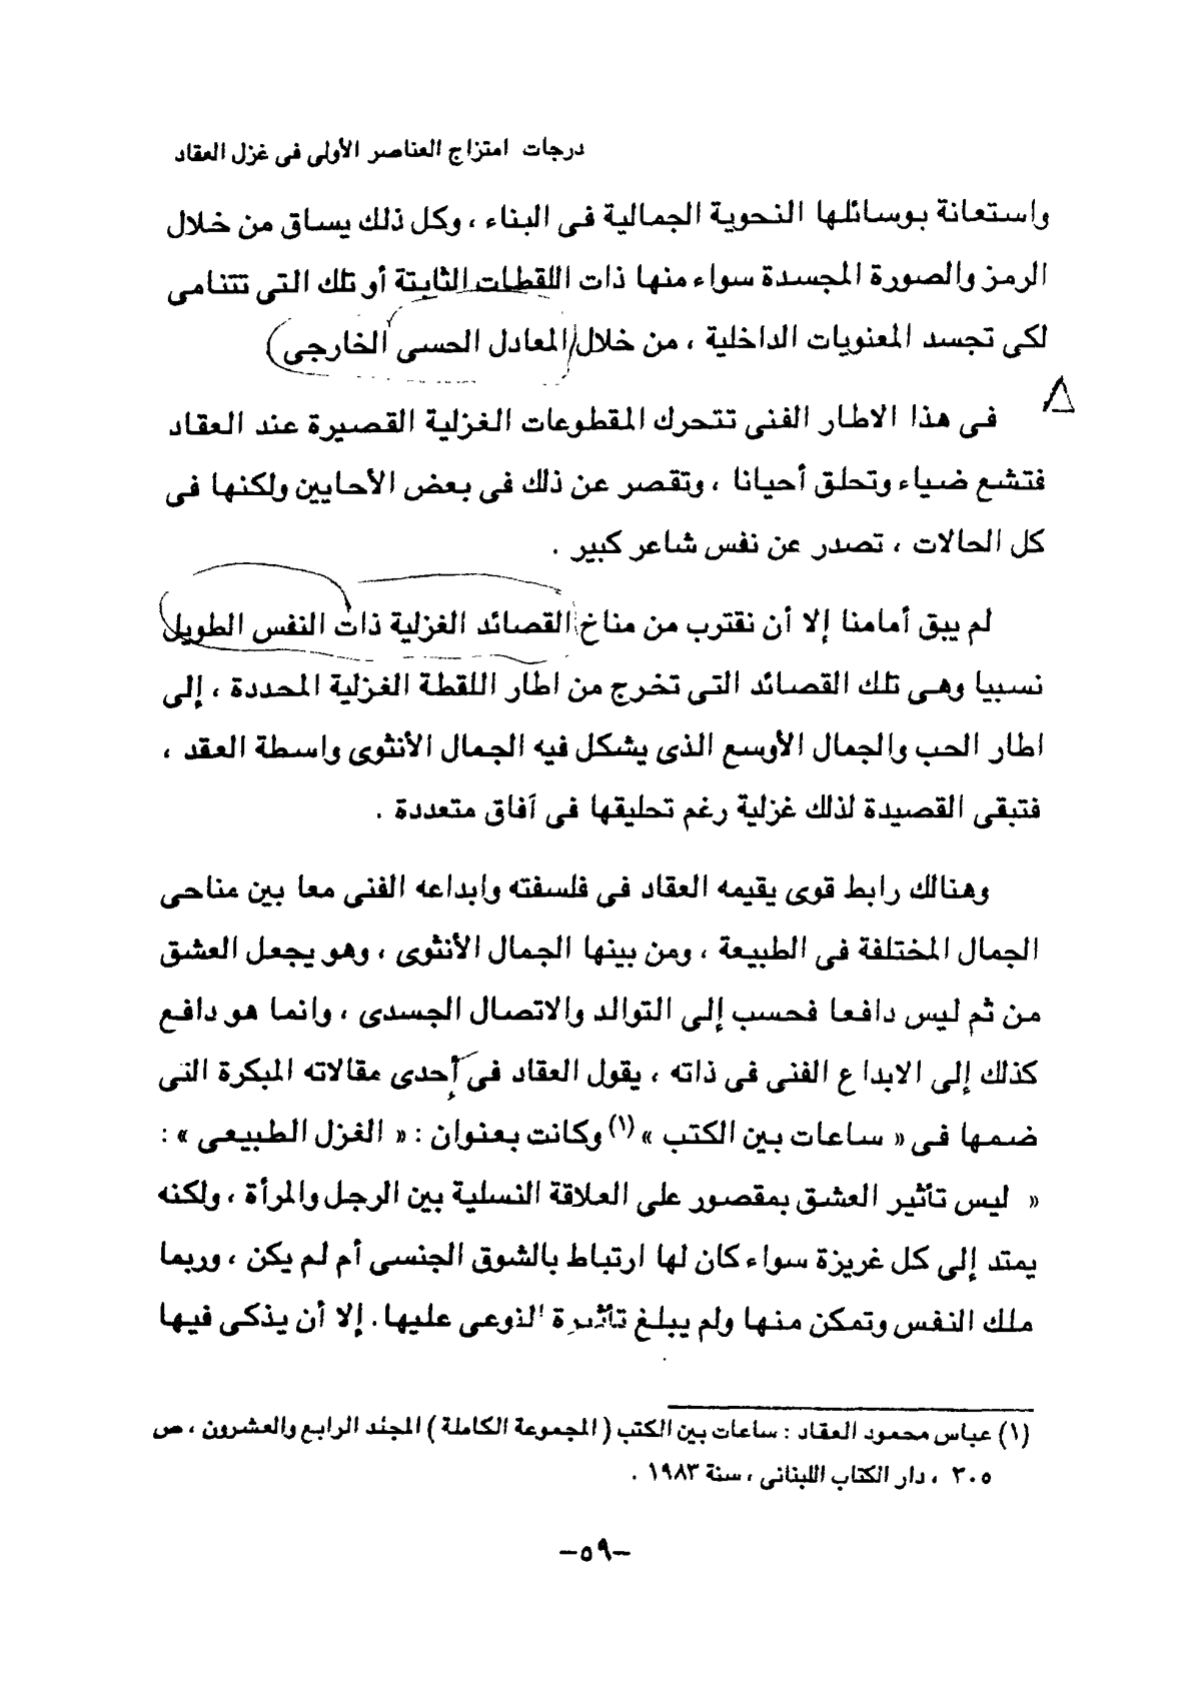 درجات امتزاج العناصر الأولى فى غزل العقاد
واستعانة بوسائلها النحوية الجمالية فى البناء ، وكل ذلك يساق من خلال
الرمز والصورة المجسدة سواء منها ذات اللقطات الثابتة أو تلك التى تتنامى
لكى تجسد المعنويات الداخلية ، من خلال المعادل الحسى الخارجى
فى هذا الاطار الفنى تتحرك المقطوعات الغزلية القصيرة عند العقاد
فتشع ضياء وتحلق أحيانا ، وتقصر عن ذلك فى بعض الأحايين ولكنها فى
كل الحالات ، تصدر عن نفس شاعر كبير .
لم يبق أمامنا إلا أن نقترب من مناخ القصائد الغزلية ذات النفس الطويل
نسبيا وهى تلك القصائد التى تخرج من اطار اللقطة الغزلية المحددة ، إلى
اطار الحب والجمال الأوسع الذى يشكل فيه الجمال الأنثوى واسطة العقد ،
فتبقى القصيدة لذلك غزلية رغم تحليقها فى آفاق متعددة .
وهنالك رابط قوى يقيمه العقاد فى فلسفته وابداعه الفنى معا بين مناحى
الجمال المختلفة فى الطبيعة ، ومن بينها الجمال الأنثوى ، وهو يجعل العشق
من ثم ليس دافعا فحسب إلى التوالد والاتصال الجسدى ، وانما هو دافع
كذلك إلى الابداع الفنى فى ذاته ، يقول العقاد فى إحدى مقالاته المبكرة التى
ضمها فى « ساعات بين الكتب »(١) وكانت بعنوان : « الغزل الطبيعى » :
« ليس تأثير العشق بمقصور على العلاقة النسلية بين الرجل والمرأة ، ولكنه
يمتد إلى كل غريزة سواء كان لها ارتباط بالشوق الجنسى أم لم يكن ، وربما
ملك النفس وتمكن منها ولم يبلغ تأثيرة النوعى عليها . إلا أن يذكى فيها
(١) عباس محمود العقاد : ساعات بين الكتب ( المجموعة الكاملة ) المجلد الرابع والعشرون ، ص
٣٠٥ ، دار الكتاب اللبنانى ، سنة ١٩٨٣ .
-٥٩-